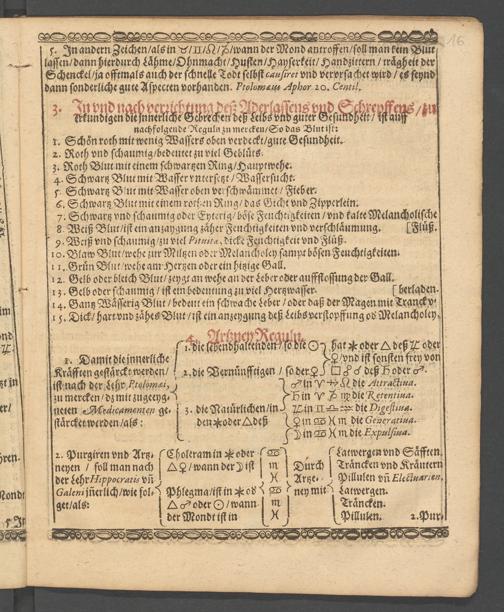 16
5. In andern Zeichen/als in ♉/♊/♌/♑/wann der Mond antroffen/soll man kein Blut
lassen/dann hierdurch Lähme/Ohnmacht/Husten/Hayserkeit/Handzittern/trägheit der
Schenckel/ja offtmals auch der schnelle Todt selbst causiret vnd verursachet wird/es seynd
dann sonderliche gute Aspecten vorhanden. Ptolomæus Aphor 20. Centil.
3. In vnd nach verrichtung deß Aderlassens vnd Schrepffens/zu
erkundigen die innerliche Gebrechen deß Leibs vnd guter Gesundheit/ist auff
nachfolgende Reguln zu mercken/So das Blut ist:
1. Schön roth mit wenig Wassers oben verdeckt/gute Gesundheit.
2. Roth vnd schaumig/bedeutet zu viel Geblüts.
3. Roth Blut mit einem schwartzen Ring/Hauptwehe.
4. Schwartz Blut mit Wasser vntersetzt/Wassersucht.
5. Schwartz Blut mit Wasser oben verschwämmet/Fieber.
6. Schwartz Blut mit einem rothen Ring/das Gicht vnd Zipperlein.
7. Schwartz vnd schaumig oder Eyterig/böse Feuchtigkeiten/vnd kalte Melancholische
8. Weiß Blut/ist ein anzaygung zäher Feuchtigkeiten vnd verschläumung. [Flüß.
9. Weiß vnd schaumig/zu viel Pituita, dicke Feuchtigkeit vnd Flüß.
10. Blaw Blut/wehe zur Miltzen oder Melancholey sampt bösen Feuchtigkeiten.
11. Grün Blut/wehe am Hertzen oder ein hitzige Gall.
12. Gelb oder bleich Blut/zeygt an wehe an der Leber oder auffstossung der Gall.
13. Gelb oder schaumig/ist ein bedeutung zu viel Hertzwasser. [berladen.
14. Gantz Wässerig Blut/bedeut ein schwache Leber/oder daß der Magen mit Tranck v-
15. Dick/hart vnd zähes Blut/ist ein anzeygung deß Leibs verstopffung ob Melancholey.
4. Artzney Reguln.
1. Damit die innerliche
Kräfften gestärckt werden/
ist nach der Lehr Ptolomæi,
zu mercken/dz mit zugeyg-
neten Medicamenten ge-
stärcket werden/als:
1. die lebendhaltenden/so die ☉
hat ✶ oder △ deß ♃ oder
♀/vnd ist sonsten frey von
2. die Vernünfftigen/so der ☿
□ ☍ ☌ deß ♄ oder ♂.
3. die Natürlichen/in
den ✶ oder △ deß
☌ in ♈ ♐ ♌ die Attractiua.
♄ in ♉ ♍ die Retentiua.
♃ in ♊ ♎ ♒ die Digestiua.
♀ in ♋ ♓ ♏ die Generatiua.
☽ in ♋ ♓ ♏ die Expulsiua.
2. Purgiren vnd Artz-
neyen/soll man nach
der Lehr Hippocratis vñ
Galeni jñerlich/wie fol-
get/als:
Choleram in ✶ oder
△ ♀/wann der ☽ ist
in
♋
♏
♓
Phlegma/ist in ✶ ob
△ ♂ oder ☉/wann
der Mondt ist in
♋
♏
♓
Durch
Artz-
ney mit
Latwergen vnd Säfften.
Träncken vnd Kräutern
Pillulen vñ Electuarien.
Latwergen.
Träncken.
Pillulen.
2. Pur-